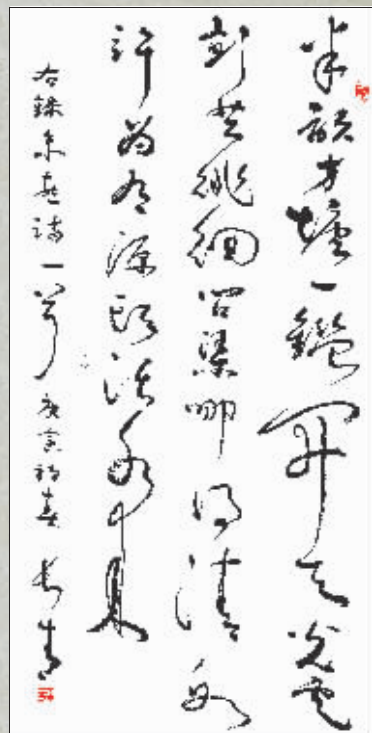 半畝方塘一鑑開天光雲
影共徘徊问渠哪得清如
許为有源頭活水来
右錄朱熹詩一首 庚寅初春 长青